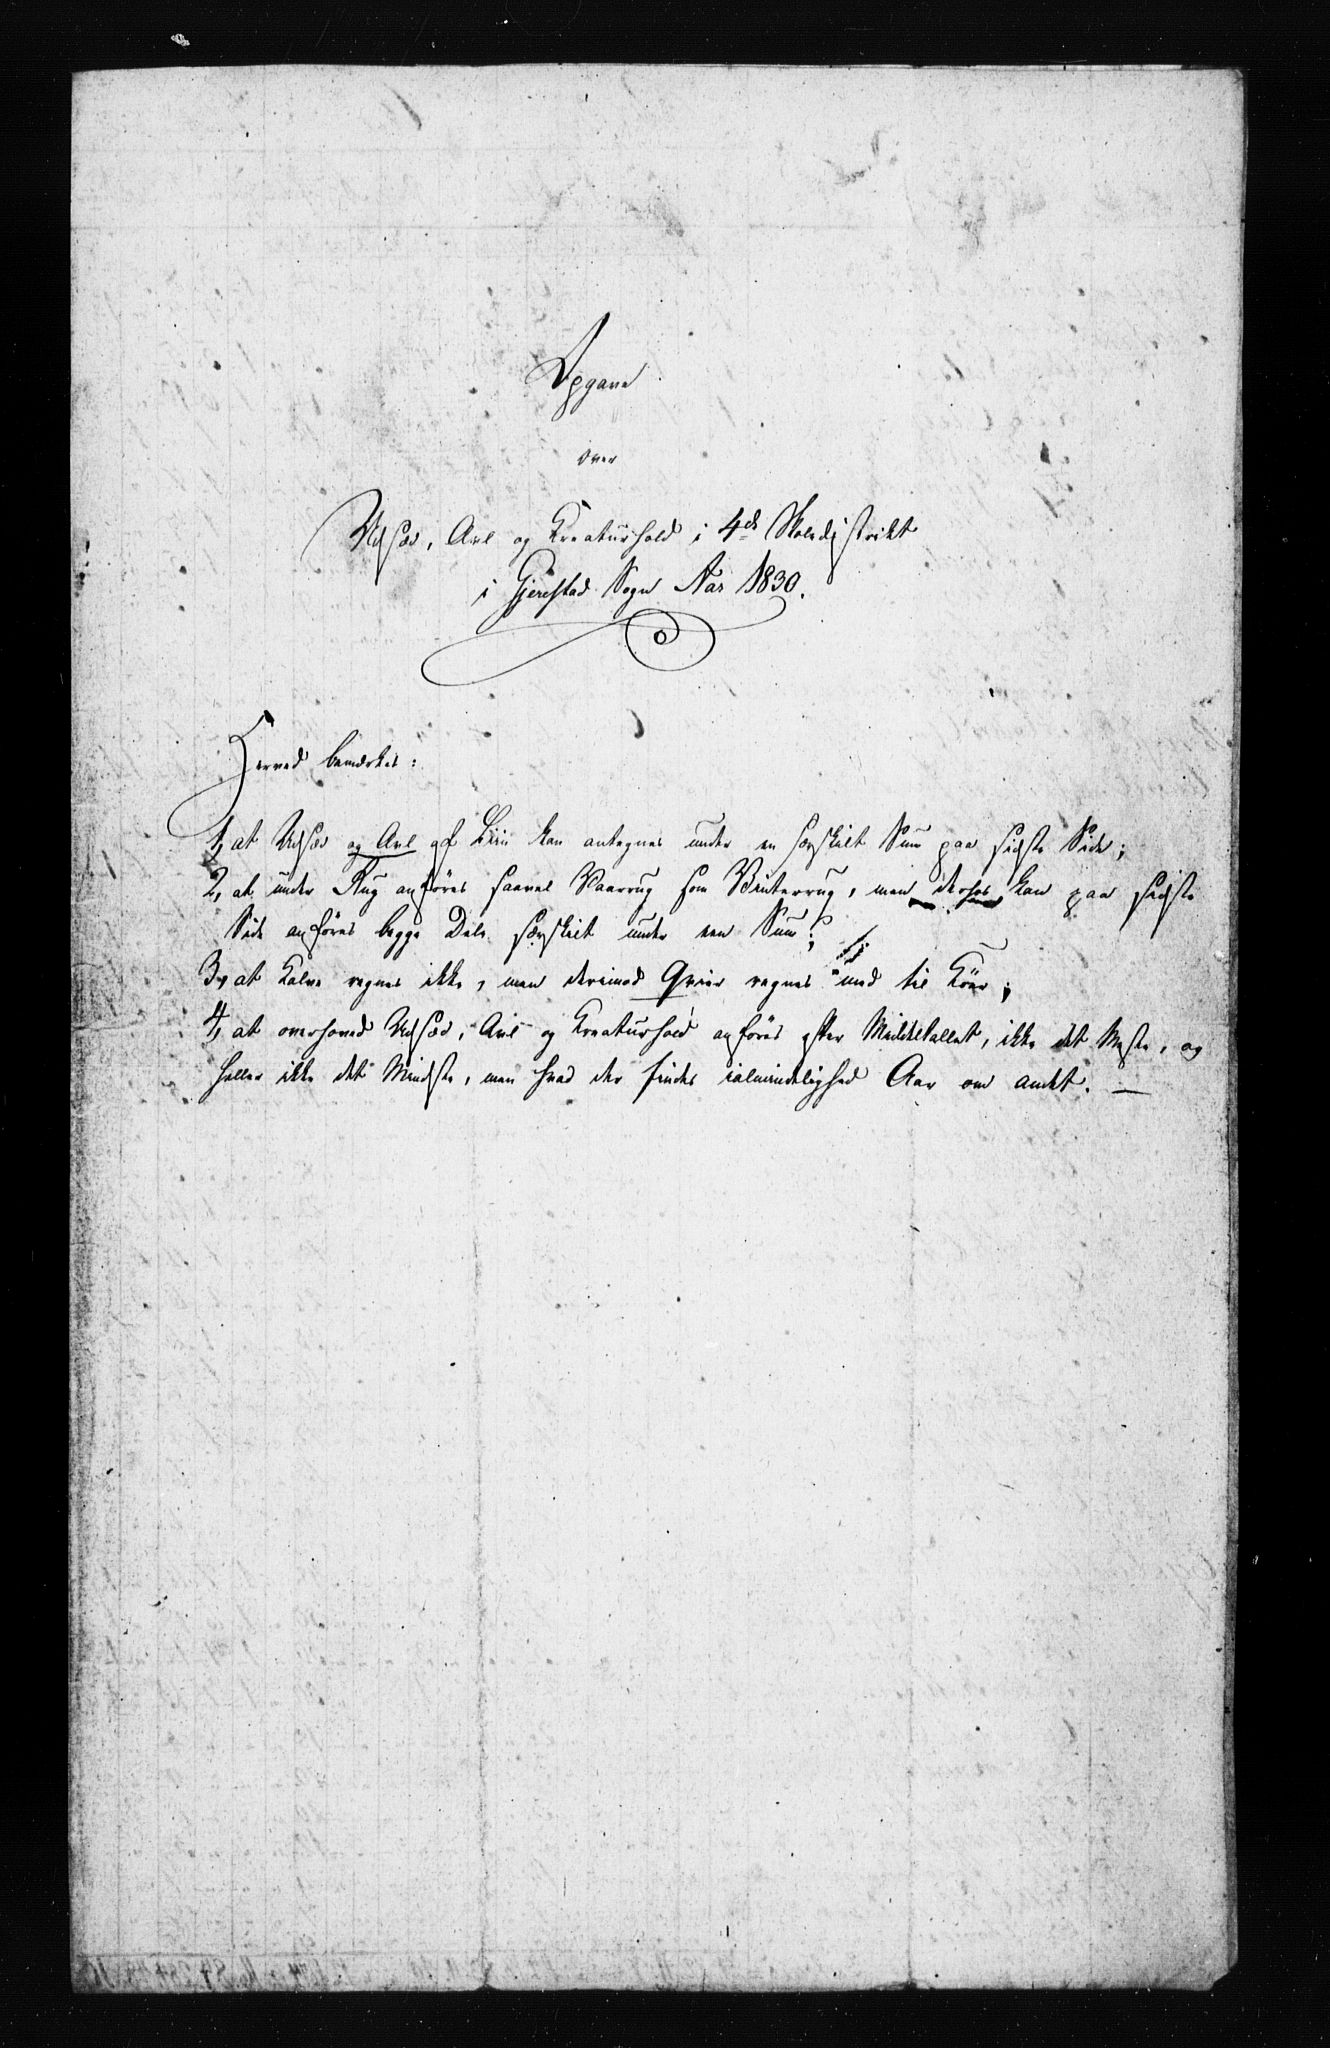 Opgave
over
Udsæd, Avl og Kreaturhold i 4de Skoledistrikt
i Gjerestad Sogn Aar 1830.
Herved bemærkes:
1, at Udsæd og Avl af Liin kan antegnes under en særskilt Sum paa sidste Side;
2, at under Rug anføres saavel Vaarrug som Vinterrug, men derhos kan paa sidste
Side anføres begge Dele særskilt under een Sum;
3, at Kalve regnes ikke, men derimod Qvier regnes med til Köer;
4, at overhoved Udsæd, Avl og Kreaturhold anføres efter Middeltallet, ikke det Meste, og
heller ikke det Mindste, men hvad der findes ialmindelighed Aar om andet. —